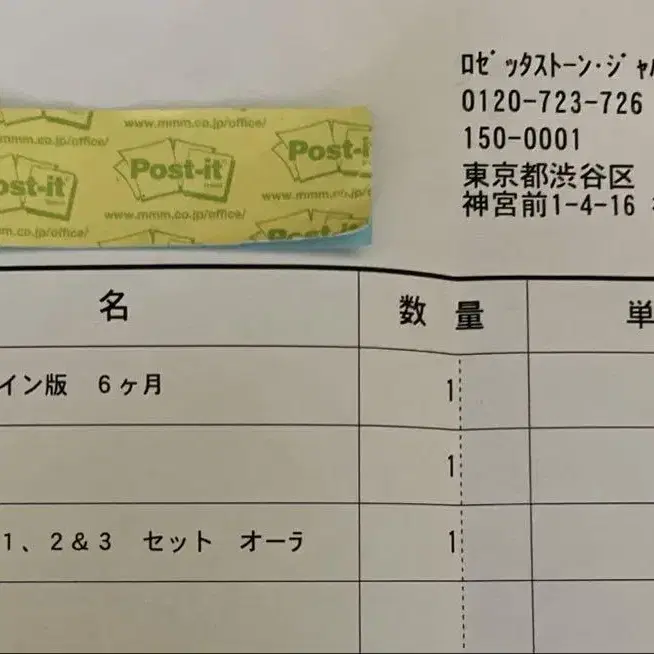 ﾛｾﾞｯﾀｽﾄｰﾝ･ｼﾞｬ
0120-723-726
150-0001
東京都渋谷区
神宮前1-4-16
www.mmm.co.jp/office/
Post-it
Post-i
ost-it
www.mmm.co.jp/office/
www.mmm.co.jp/office/
m.co.jp/office/
Post-it
名 数量 単
イン版 6ヶ月 1
1
1、2&3 セット オーラ 1